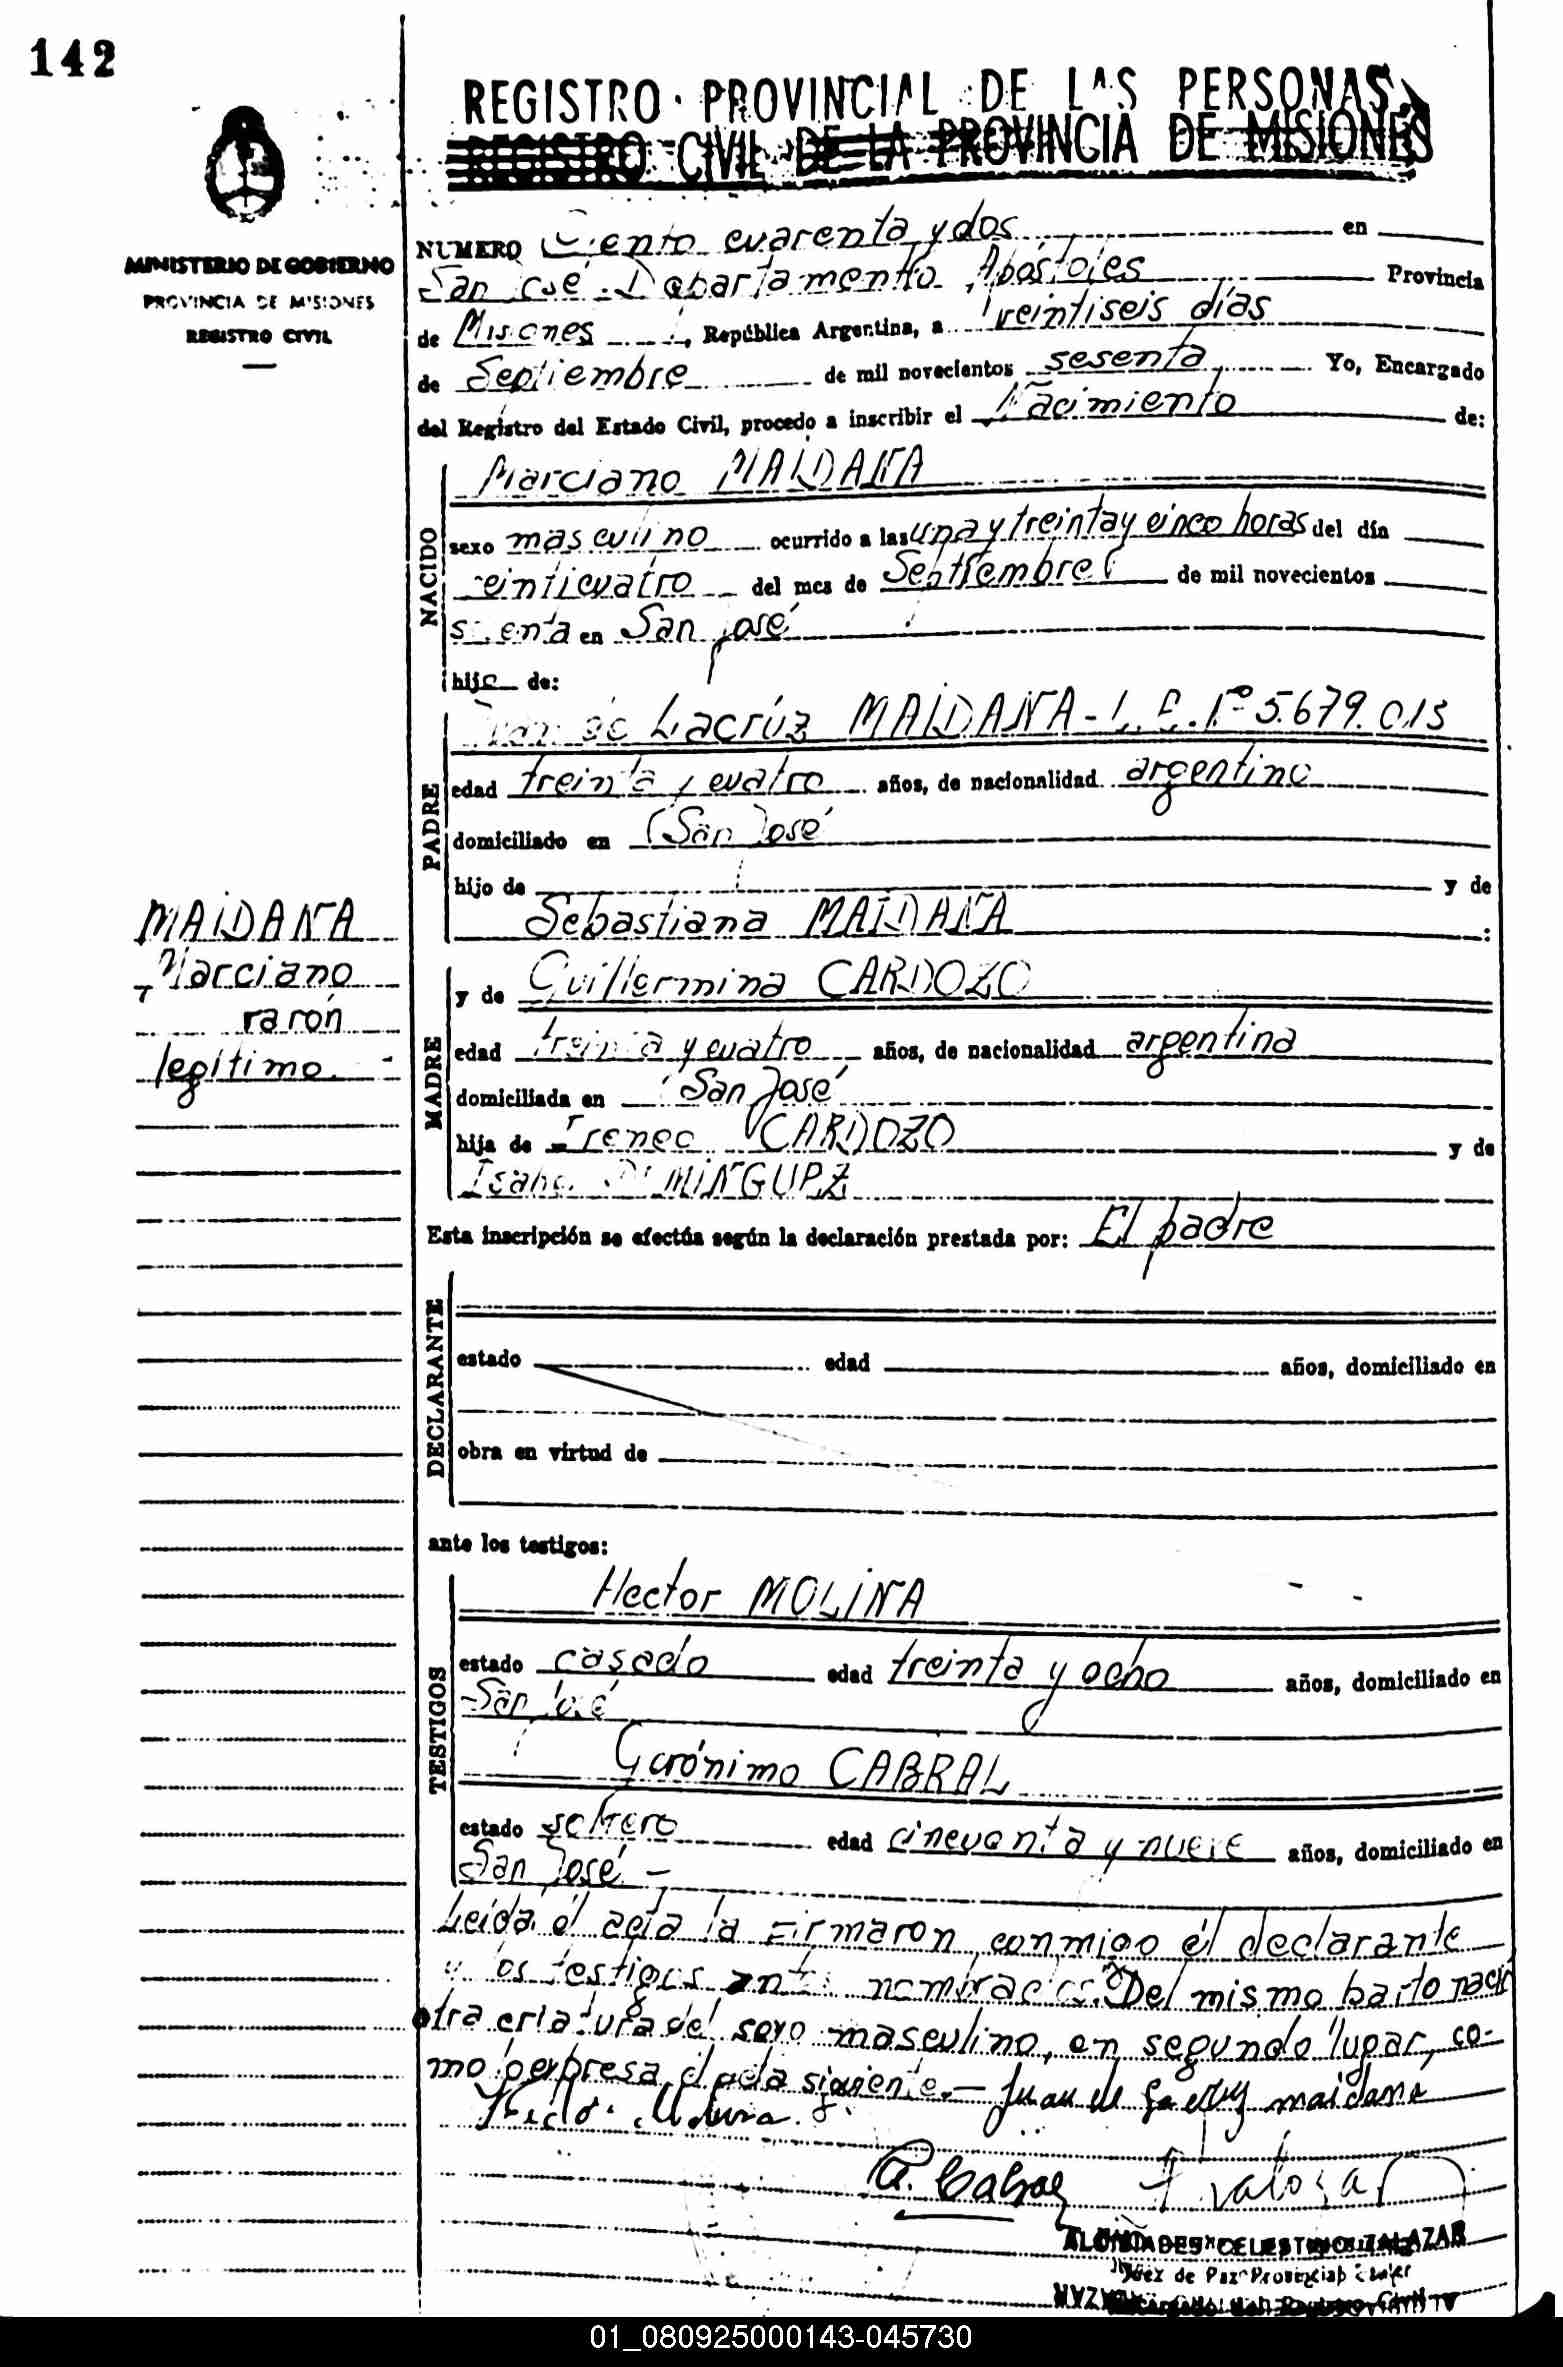 142
REGISTRO PROVINCIAL DE LAS PERSONAS
REGISTRO CIVIL DE LA PROVINCIA DE MISIONES
MINISTERIO DE GOBIERNO
PROVINCIA DE MISIONES
REGISTRO CIVIL
NUMERO Ciento cuarenta y dos en
San José Departamento Apóstoles Provincia
de Misiones, República Argentina, a Veintiseis días
de Septiembre de mil novecientos sesenta Yo, Encargado
del Registro del Estado Civil, procedo a inscribir el Nacimiento de:
NACIDO
Marciano MAIDANA
sexo masculino ocurrido a las una y treinta y cinco horas del día
veinticuatro del mes de Septiembre de mil novecientos
sesenta en San José
hijo de:
PADRE
Juan de Lacrúz MAIDANA - L.E. Nº 5.679.013
edad treinta y cuatro años, de nacionalidad argentino
domiciliado en San José
hijo de y de
Sebastiana MAIDANA :
MAIDANA
Marciano
varón
legítimo.
MADRE
y de Guillermina CARDOZO
edad treinta y cuatro años, de nacionalidad argentina
domiciliada en San José
hija de Ireneo CARDOZO y de
Isabel DOMINGUEZ
Esta inscripción se efectúa según la declaración prestada por: El padre
DECLARANTE
estado edad años, domiciliado en
obra en virtud de
ante los testigos:
TESTIGOS
Hector MOLINA
estado casado edad treinta y ocho años, domiciliado en
San José
Gerónimo CABRAL
estado soltero edad cincuenta y nueve años, domiciliado en
San José -
Leida el acta la firmaron conmigo él declarante
y los testigos antes nombrados. Del mismo parto nació
otra criatura del sexo masculino, en segundo lugar, co-
mo lo expresa el acta siguiente.- Juan de La cruz maidana
Molina
G. Cabral
CELESTINO ZALAZAR
Juez de Paz
Encargado del Registro Civil
01_080925000143-045730